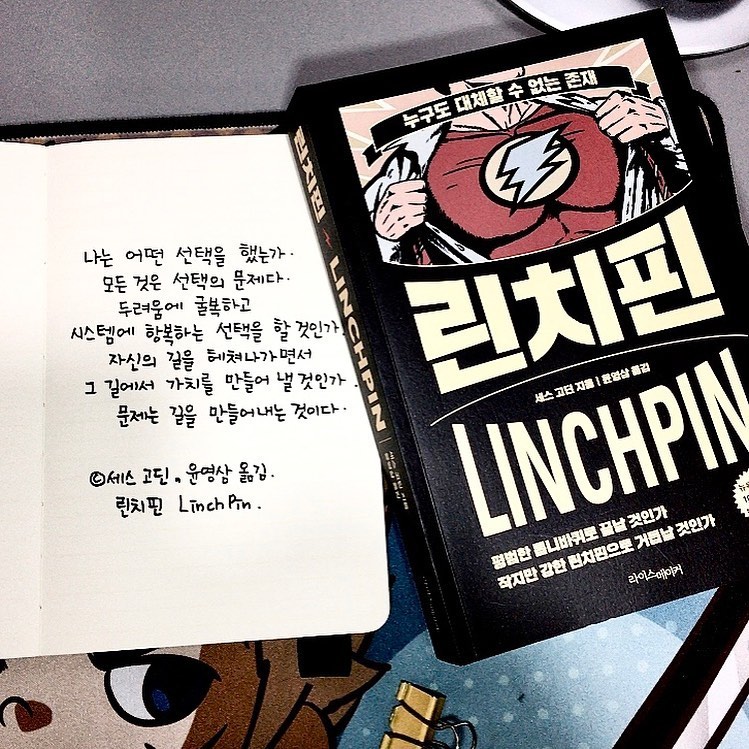 나는 어떤 선택을 했는가.
모든 것은 선택의 문제다.
두려움에 굴복하고
시스템에 항복하는 선택을 할 것인가.
자신의 길을 헤쳐나가면서
그 길에서 가치를 만들어 낼 것인가.
문제는 길을 만들어내는 것이다.
©세스 고딘. 윤영삼 옮김.
린치핀 LinchPin.
린치핀 LINCHPIN
누구도 대체할 수 없는 존재
린치핀
세스 고딘 지음 | 윤영삼 옮김
LINCHPIN
평범한 톱니바퀴로 끝날 것인가
작지만 강한 린치핀으로 거듭날 것인가
라이스메이커